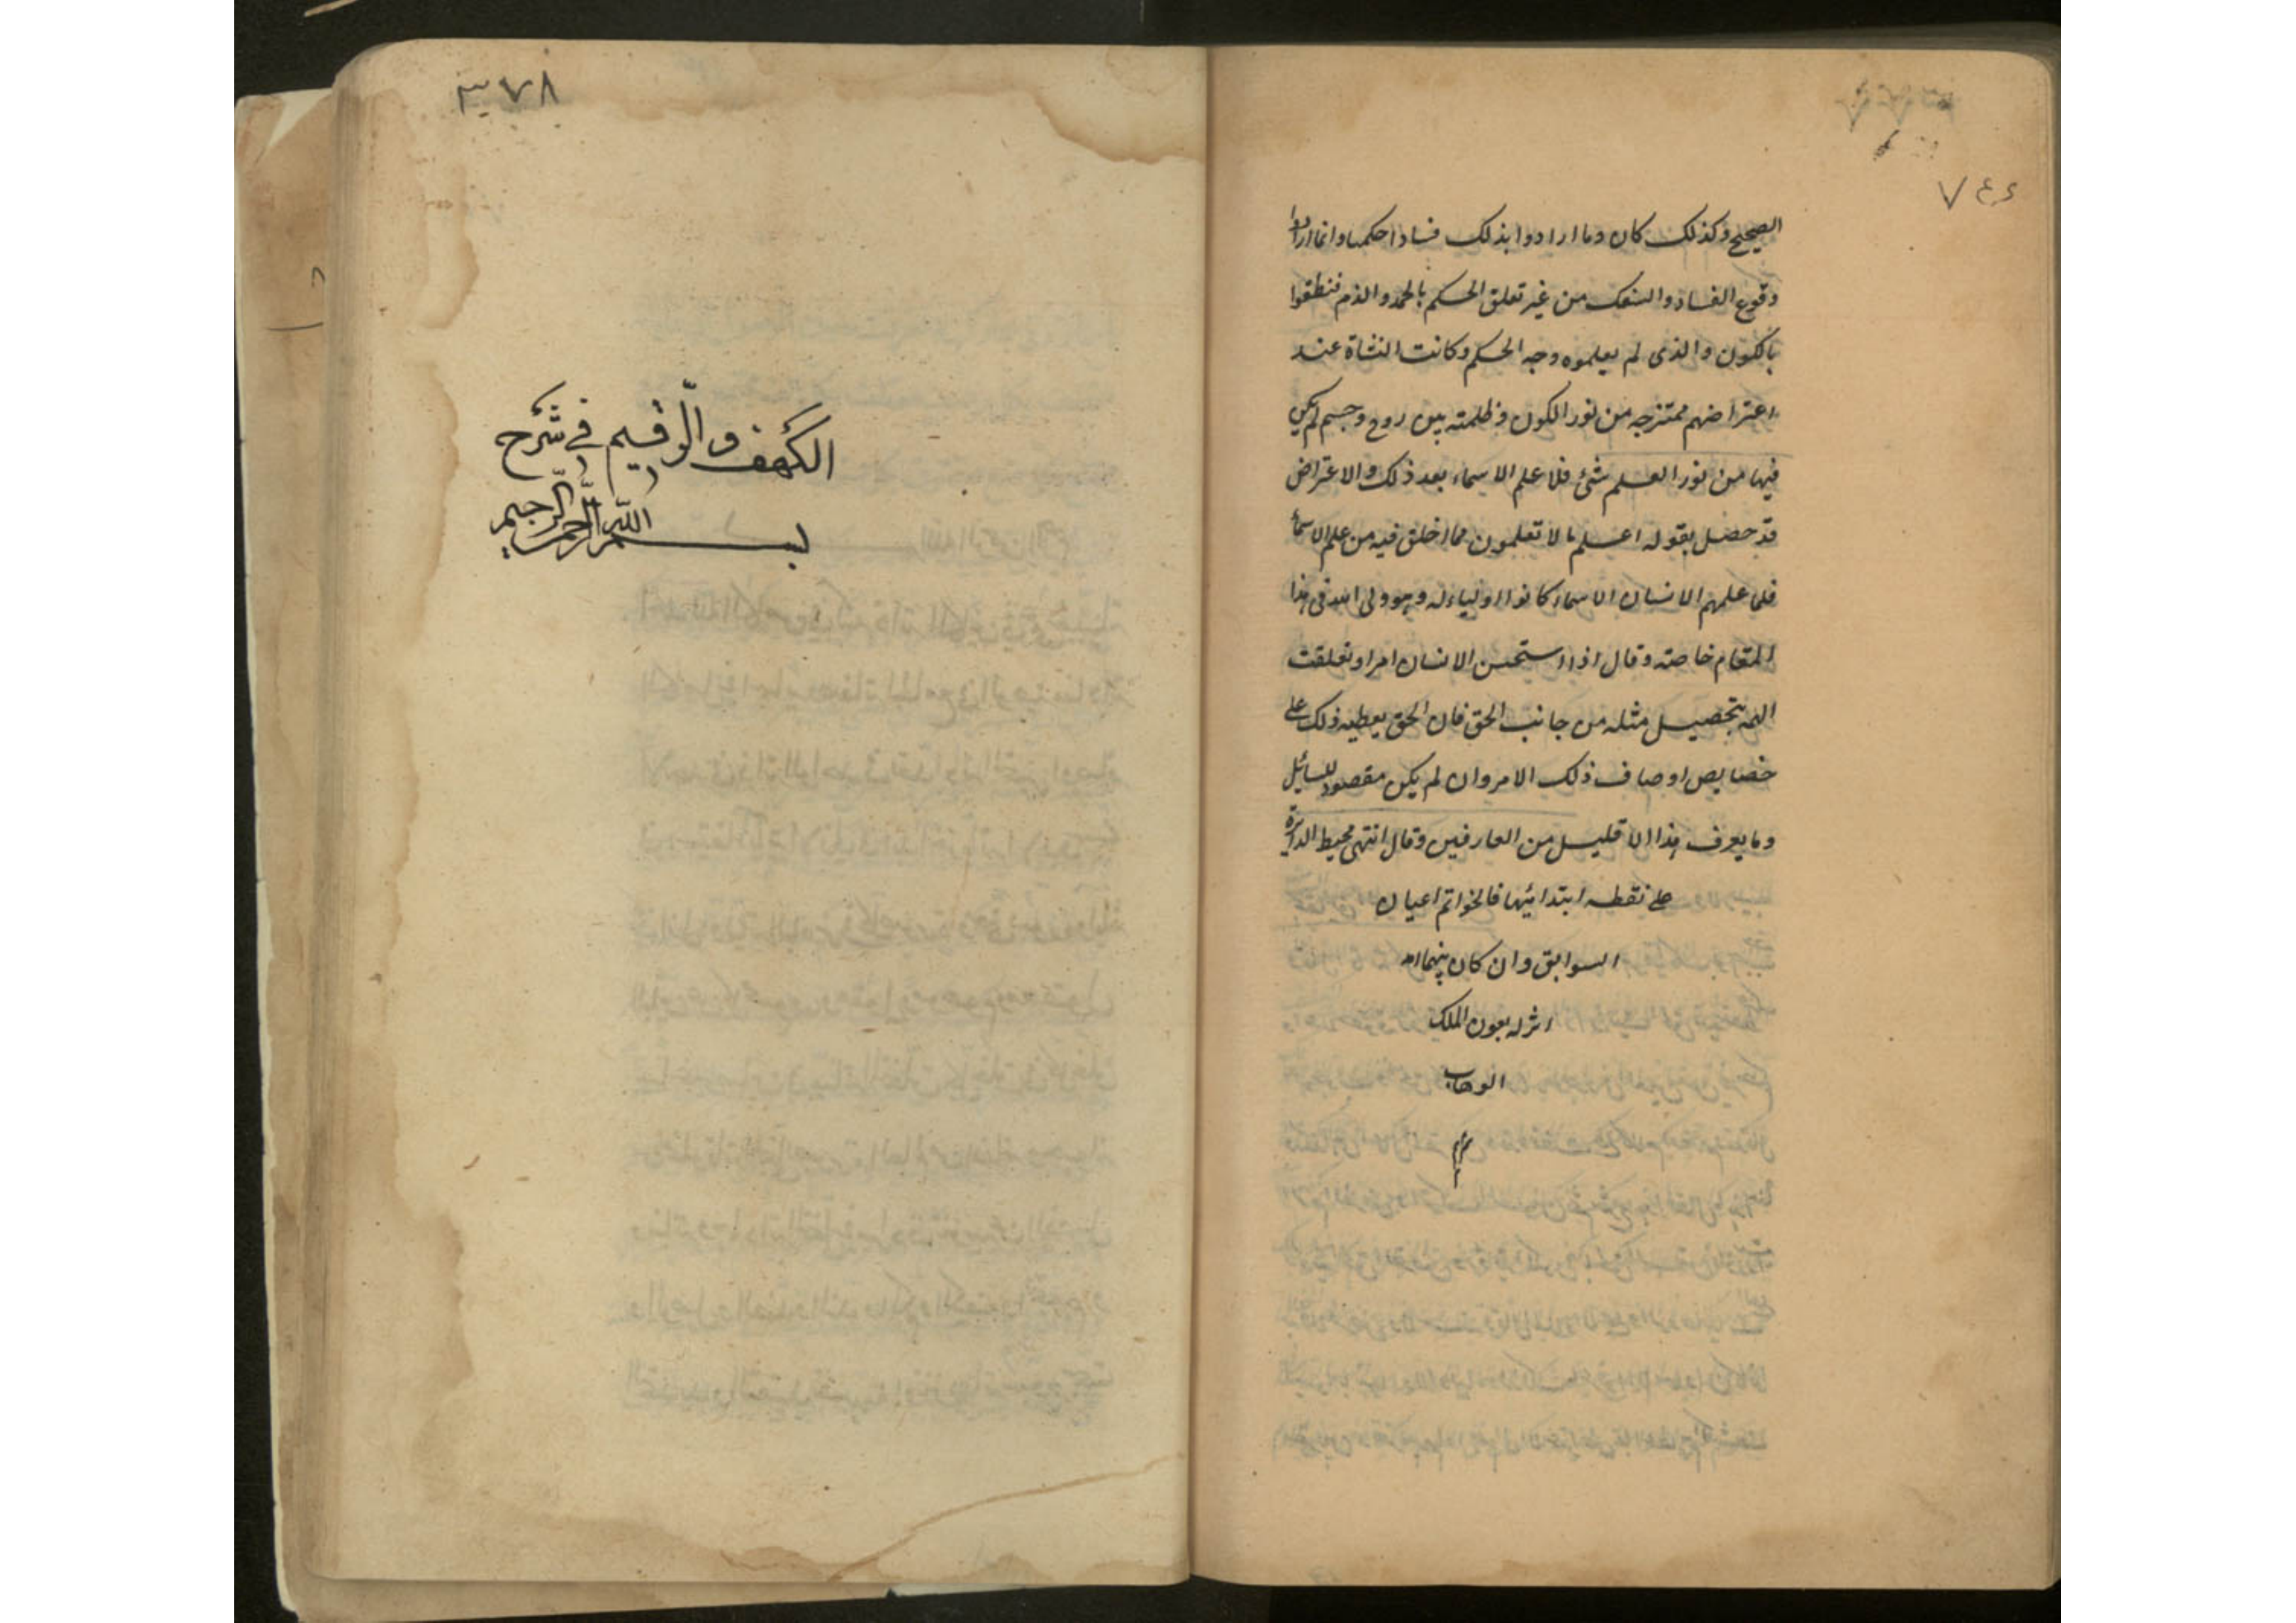 ٧٤٤
الصحيح وكذلك كان وما ارادوا بذلك فسادا حكميا وانما ارادوا
وقوع الفساد والسفك من غير تعلق الحكم بالحمد والذم فنطقوا
بالكون والذى لم يعلموه وجه الحكم وكانت النشاة عند
اعتراضهم ممتزجه من نور الكون وظلمته بين روح وجسم لم يكن
فيها من نور العلم شئ فلا علم الاسماء بعد ذلك والاعتراض
قد حصل بقوله اعلم ما لا تعلمون مما اخلق فيه من علم الاسماء
فلما علمهم الانسان الاسماء كانوا اولياء له وهو ولى الله فى هذا
المقام خاصته وقال اذا استحسن الانسان امرا وتعلقت
الهمه بتحصيل مثله من جانب الحق فان الحق يعطيه ذلك على
خصايص اوصاف ذلك الامر وان لم يكن مقصود للسايل
وما يعرف هذا الا قليل من العارفين وقال انتهى محيط الدايرة
على نقطه ابتدائيها فالخواتم اعيان
السوابق وان كان بينهما امد
بعون الملك
الوهاب
٣٧٨
الكهف والرقيم في شرح
بسم الله الرحمن الرحيم